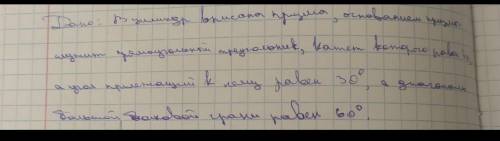 Дано: В цилиндр вписана призма, основанием призмы
служит прямоугольный треугольник, катет которого равен
а угол прилежащий к нему равен 30°, а диагональ
большой боковой грани равен 60°.